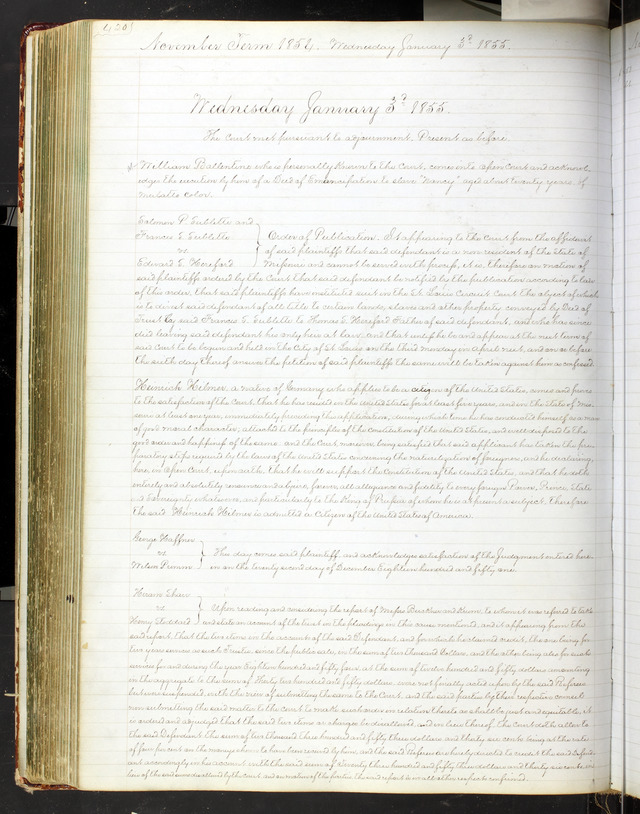 420
November Term 1854. Wednesday January 3d 1855.
Wednesday January 3d 1855.
The Court met pursuant to adjournment. Present as before.
William Ballentine who is personally known to the Court, comes into open Court and acknowl-
edges the execution by him of a Deed of Emancipation to slave "Nancy" aged about twenty years, of
mulatto color.
Solomon P. Sublette and
Frances S. Sublette
vs
Edward S. Hereford
Order of Publication. It appearing to the Court from the affidavit
of said plaintiffs that said defendant is a non resident of the State of
Missouri and cannot be served with process, it is therefore on motion of
said plaintiffs ordered by the Court that said defendant be notified by the publication according to law
of this order, that said plaintiffs have instituted suit in the St. Louis Circuit Court the object of which
is to divest said defendant of all title to certain lands, slaves and other property conveyed by Deed of
Trust by said Frances S. Sublette to Hereford Father of said defendant, and who has since
died leaving said defendant his only heir at law and that unless he be and appear at the next term of
said Court to be begun and held in the City of St Louis on the third monday in April next, and on or before
the sixth day thereof answer the petition of said plaintiffs the same will be taken against him as confessed
Heinrich Hilmer a native of Germany who applies to be a citizen of the United States, comes and proves
to the satisfaction of the Court, that he has resided in the United States for at least five years, and in the State of Mis-
souri at least one year, immediately preceding this application, during which time he has conducted himself as a man
of good moral character, attached to the principles of the Constitution of the United States, and well disposed to the
good order and happiness of the same and the Court moreover being satisfied that said applicant has taken the pre-
paratory steps required by the laws of the United States concerning the naturalization of foreigners, and he declaring,
here, in Open Court, upon oath, that he will support the Constitution of the United States, and that he doth
entirely and absolutely renounce and abjure, forever, all allegiance and fidelity to every foreign Power, Prince, State
and Sovereignty whatsoever, and particularly to the King of Prussia of whom he is at present a subject, Therefore
the said Heinrich Hilmer is admitted a Citizen of the United States of America.
George Haffner
vs
Wilson Primm
This day comes said plaintiff and acknowledges satisfaction of the Judgment entered here-
in on the twenty second day of December Eighteen hundred and fifty one
Hiram Shaw
vs
Henry Stoddard
Upon reading and considering the report of Messrs and to whom it was referred to take
and state an account of the trust in the pleadings in this cause mentioned, and it appearing from the
said report, that the two items in the accounts of the said Defendant, and for which he claimed credit, the one being for
two years service as such Trustee, since the public sale, in the sum of two thousand Dollars, and the other being also for such
service for and during the year Eighteen hundred and fifty four, at the sum of twelve hundred and fifty dollars amounting
in the aggregate to the sum of Thirty two hundred and fifty dollars, were not finally acted upon by the said Referees
but were suspended, with the view of submitting the same to the Court, and the said parties by their respective counsel
now submitting the said matter to the Court to make such order in relation thereto as shall be just and equitable, it
is ordered and adjudged that the said two items or charges be disallowed, and in lieu thereof the Court doth allow to
the said Defendant the sum of two thousand three hundred and fifty three dollars and thirty six cents being at the rate
of four per cent on the moneys shown to have been received by him, and the said Referees are hereby directed to credit the said Defend-
ant accordingly in his account with the said sum of Twenty three hundred and fifty three dollars and thirty six cents in
lieu of the said sums disallowed by the court and on motion of the parties the said report is in all other respects confirmed.